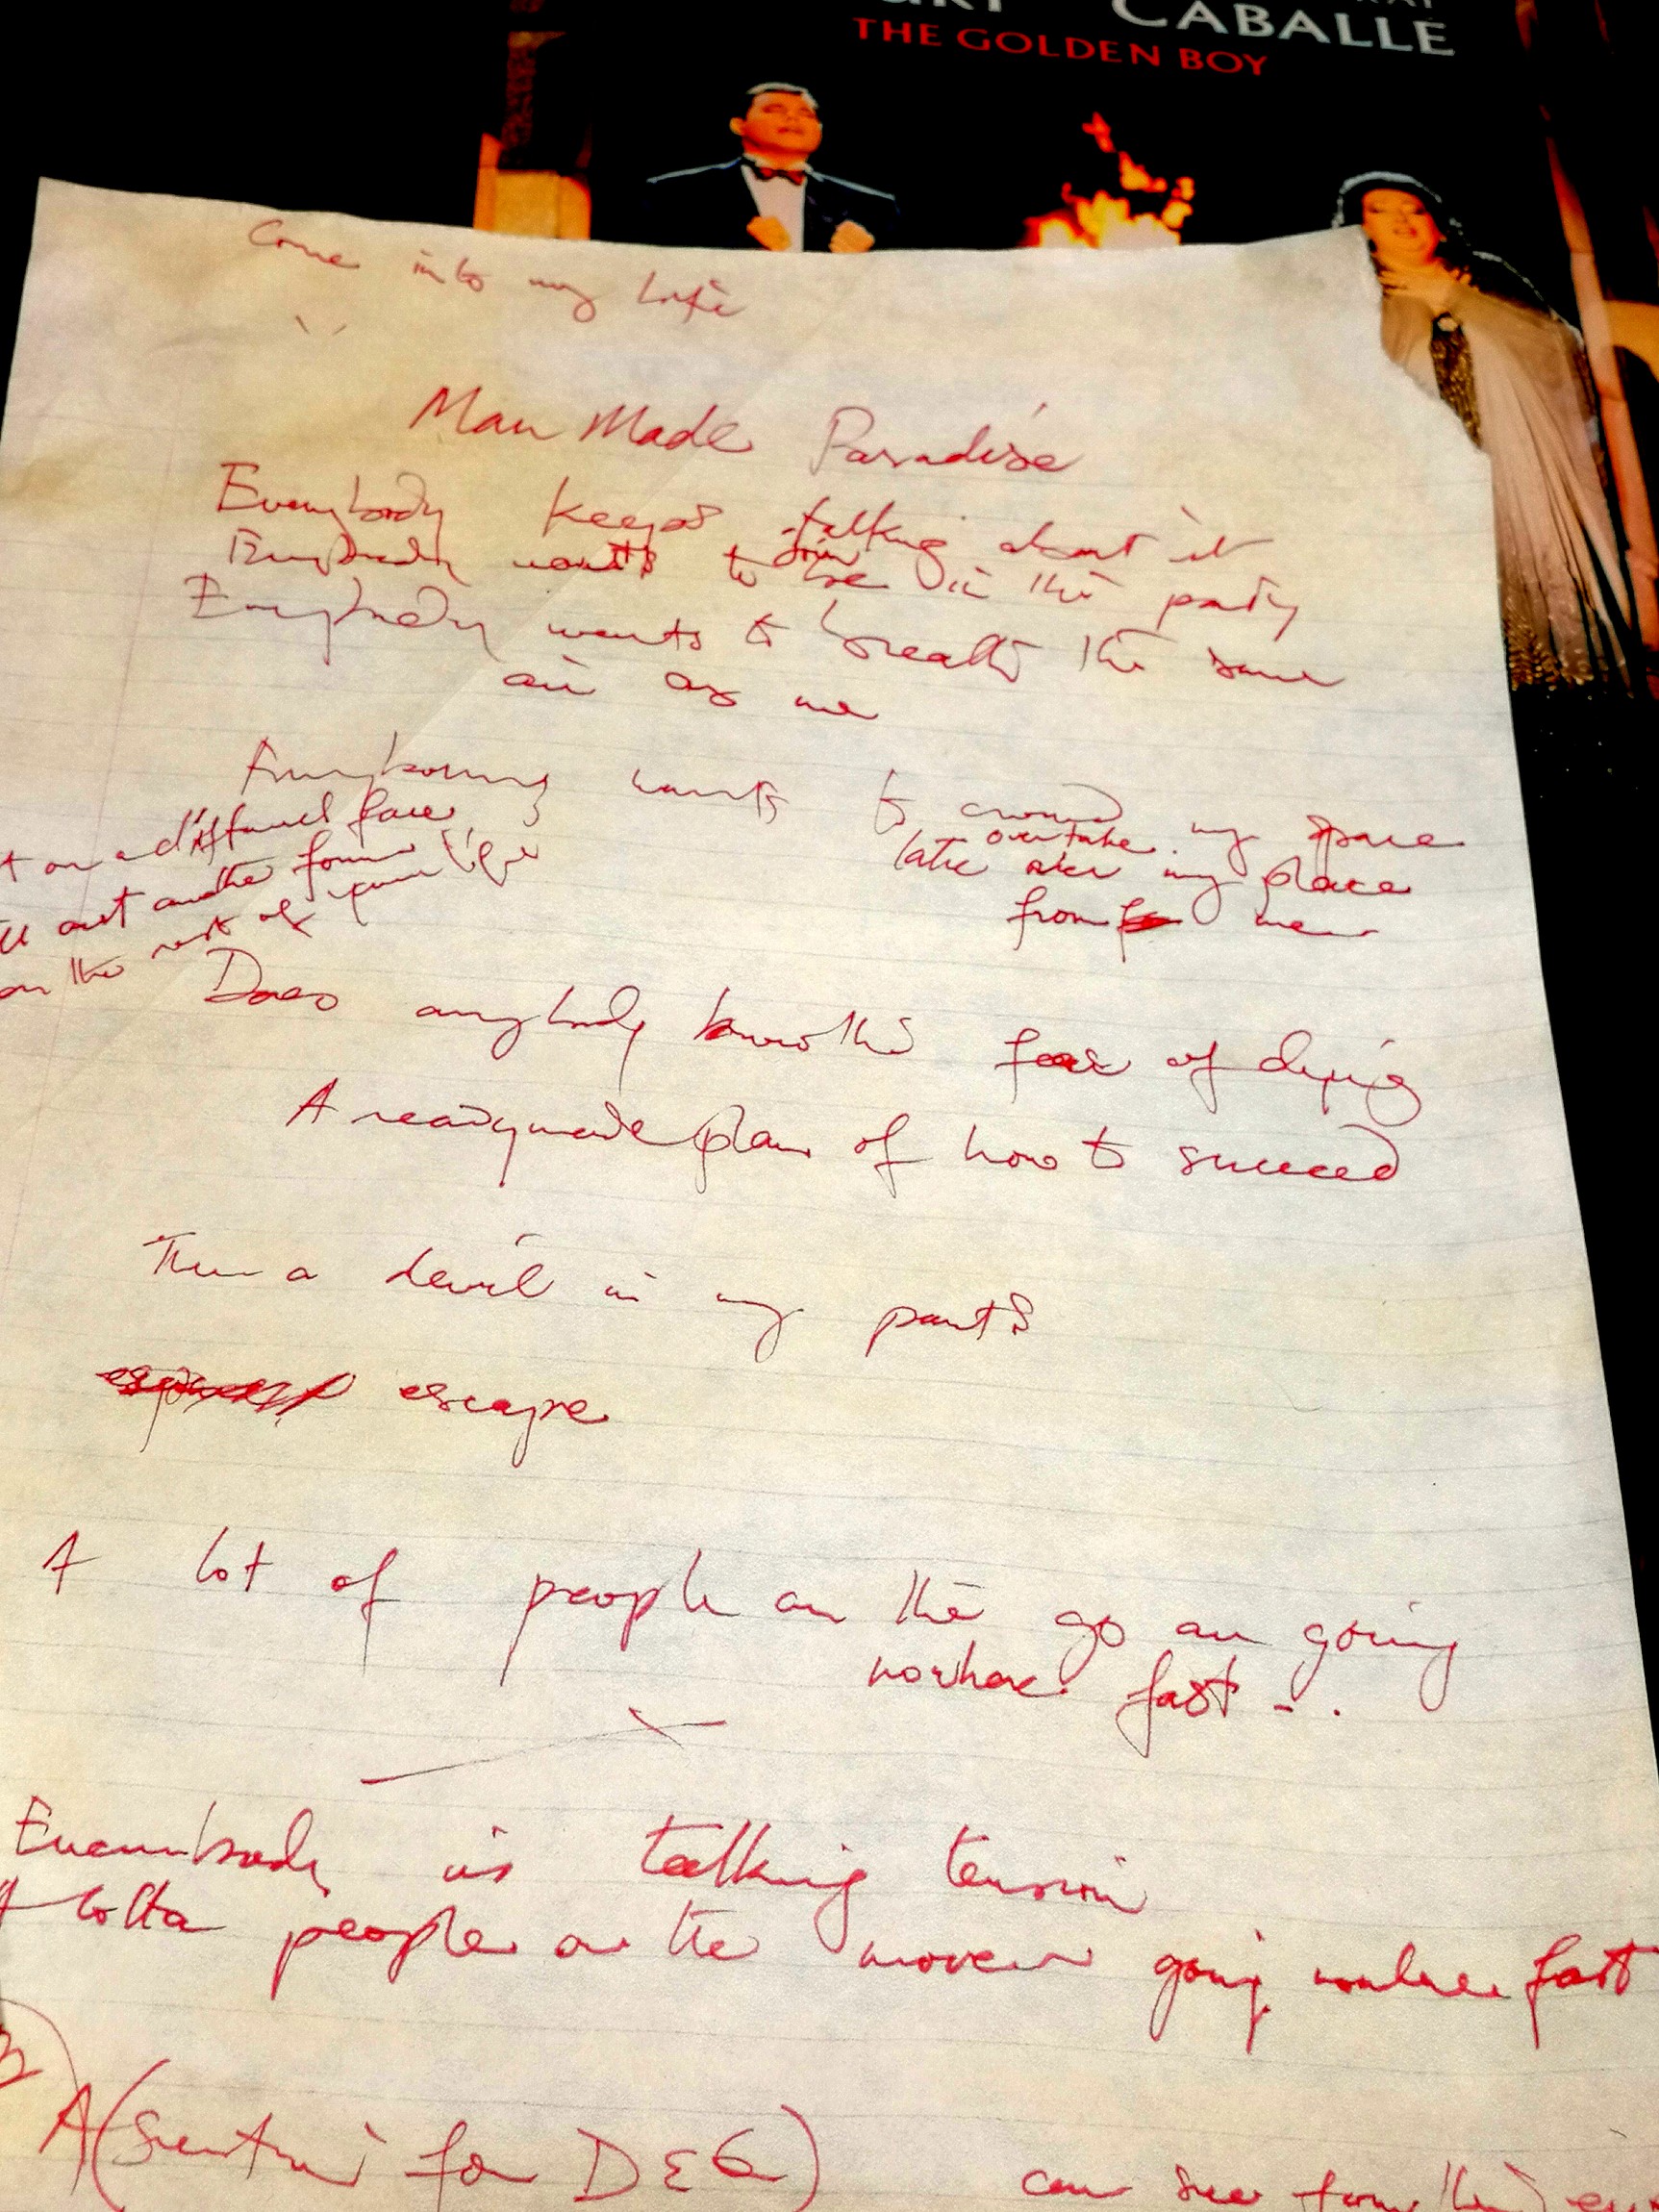 CABALLE
THE GOLDEN BOY
Come into my life
Man Made Paradise
Everybody keeps talking about it
Everybody wants to join be in the party
Everybody wants to breath the same
air as me
wants to crowd my space
overtake
take over my place
from me
on a different face
act another form
on the rest of your life
Does anybody know the fear of dying
A readymade plan of how to succeed
a devil in my pants
escape
A lot of people on the go are going
nowhere fast - .
Everybody is talking tension
A lotta people on the move going nowhere fast
A ( for D E G)
can see from the